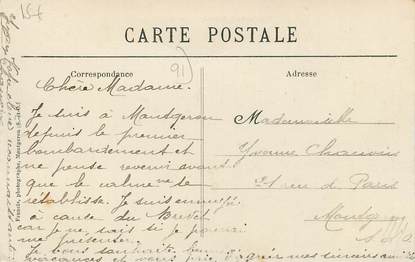 154
CARTE POSTALE
91
Correspondance
Adresse
Chère Madame.
Je suis à Montgeron
depuis le premier
bombardement et
ne pense revenir avant
que le calme ne se
rétablisse. Je suis
à cause du Brevet
car je ne sais si je pourrai
me présenter.
Je vous souhaite bonnes
vacances et vous prie d'agréer mes
Mademoiselle
Yvonne Chauvin
rue de Paris
Montgeron
S. et O.
photographe, Montgeron (S.-et-O.)